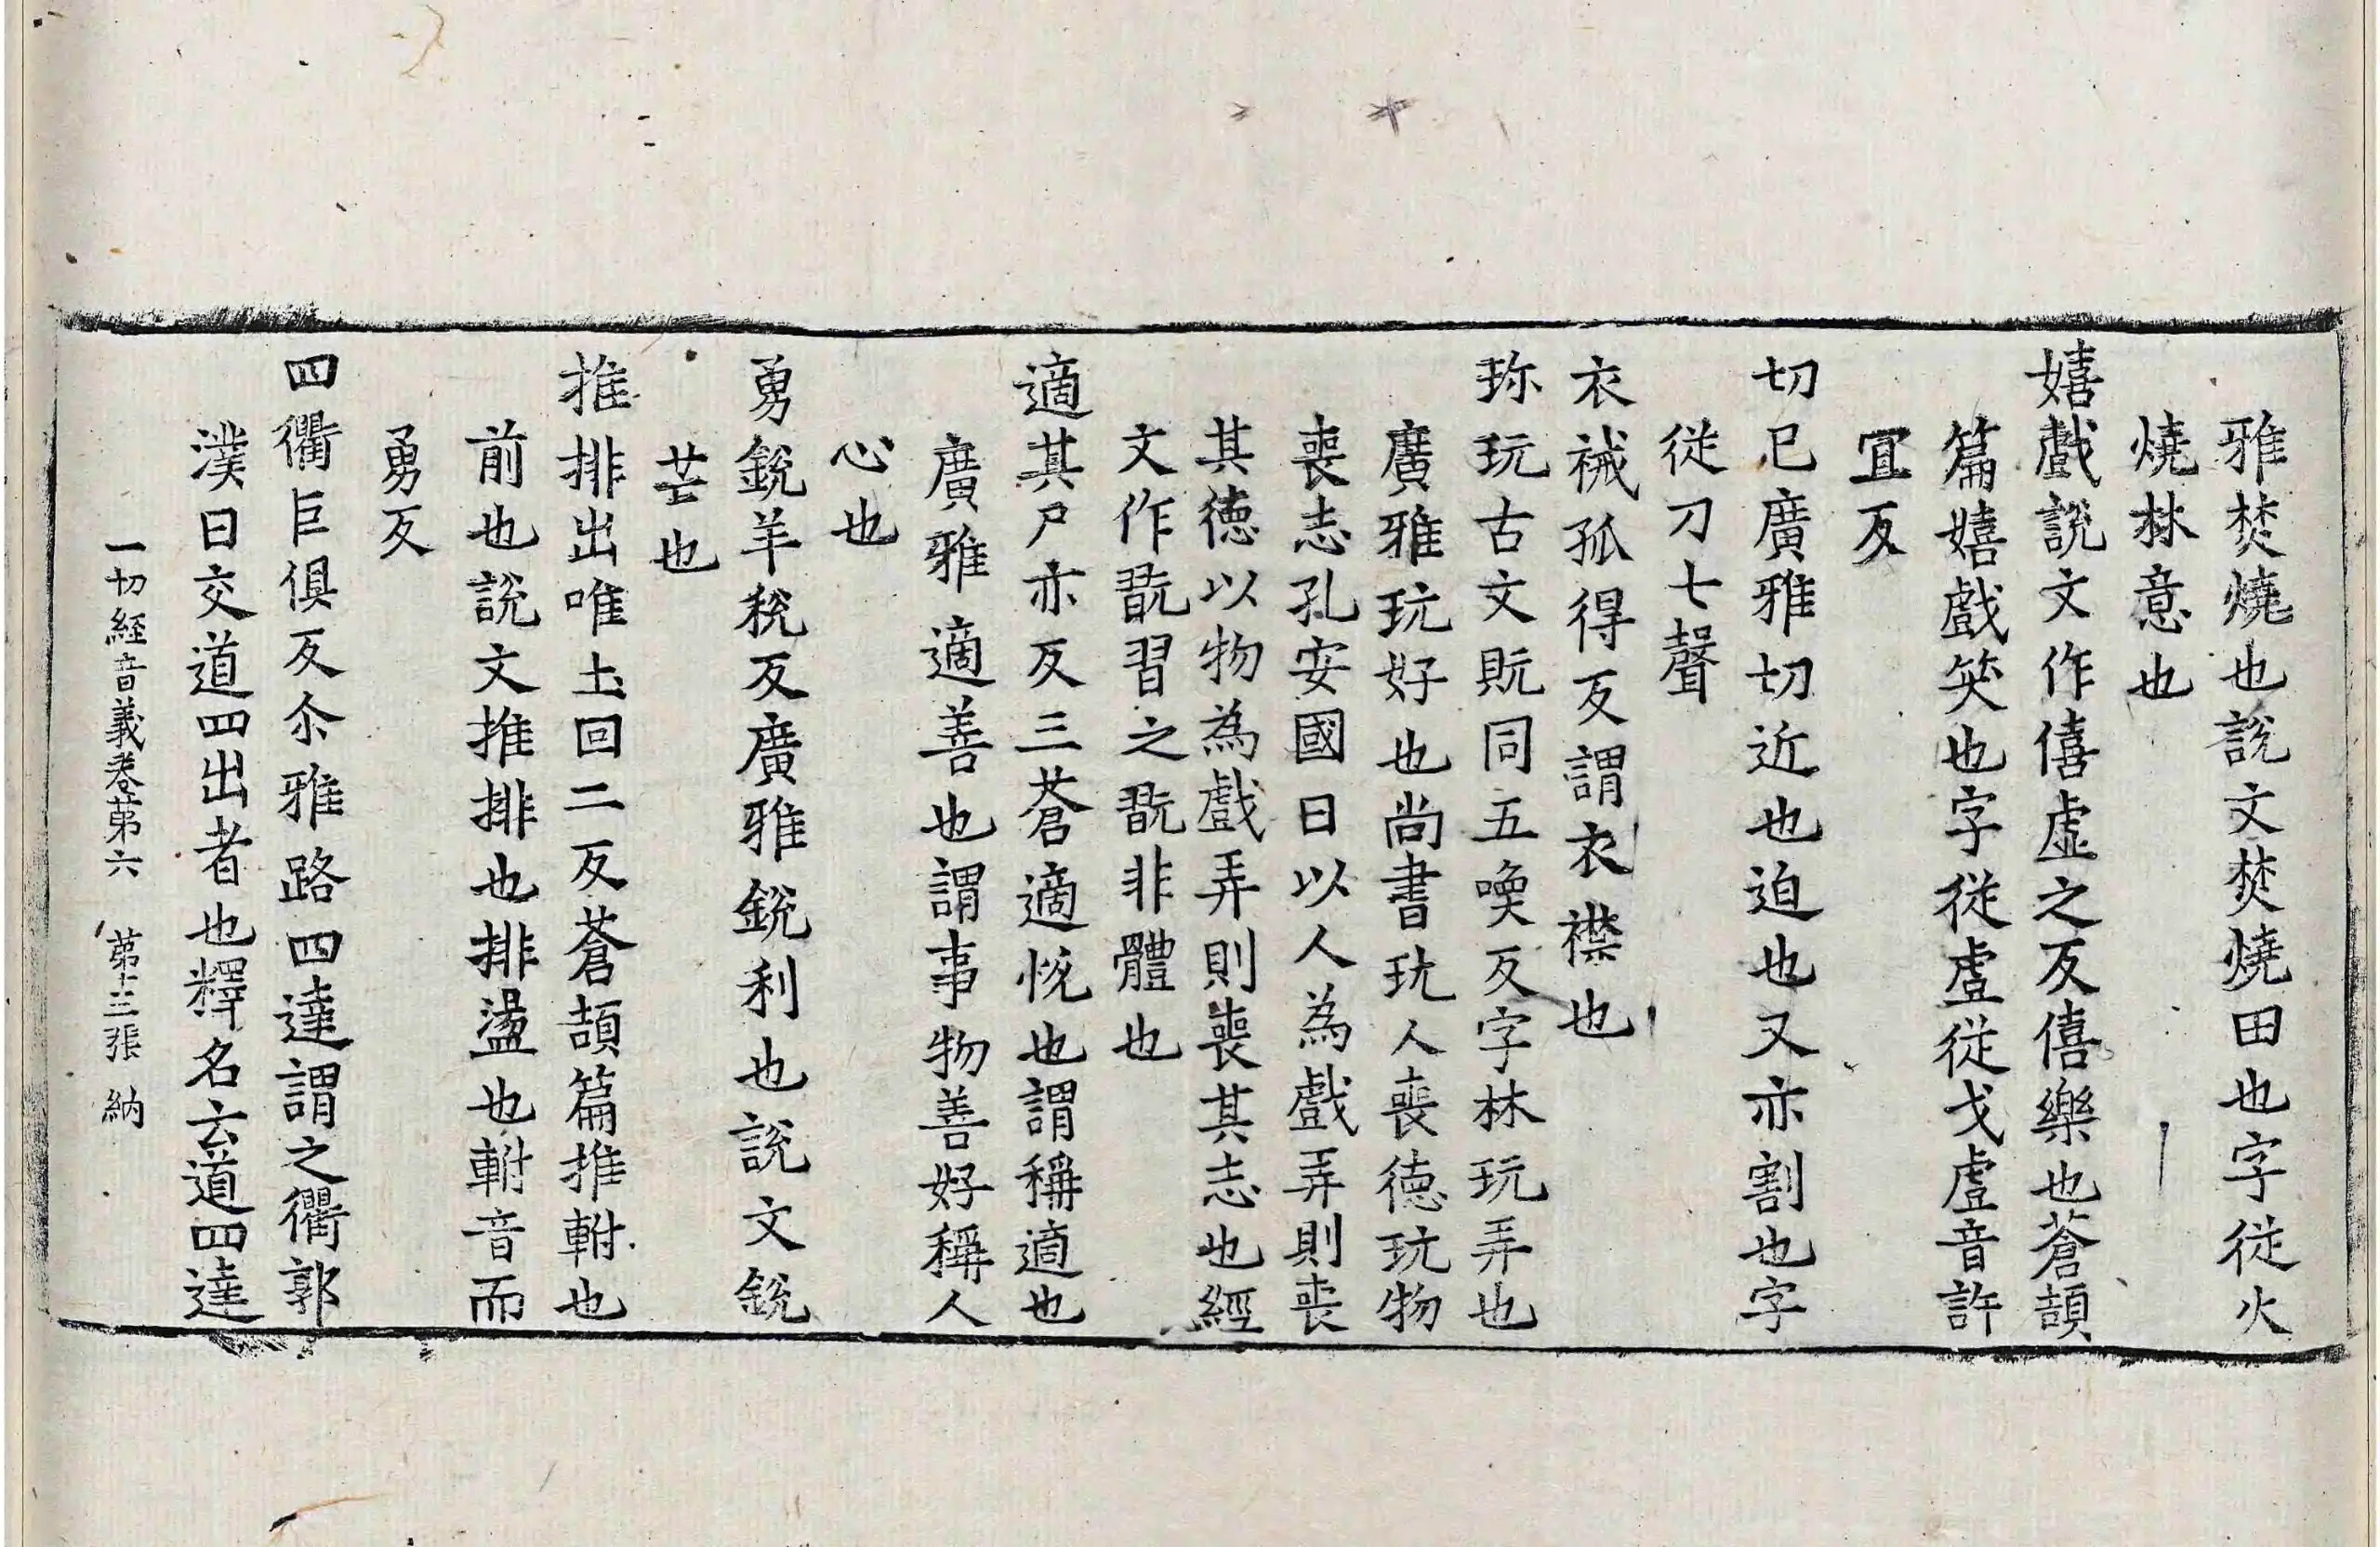 雅焚燒也說文焚燒田也字從火
燒林意也
嬉戲說文作僖虛之反僖樂也蒼頡
篇嬉戲笑也字從䖒從戈䖒音許
宜反
切已廣雅切近也迫也又亦割也字
從刀七聲
衣裓孤得反謂衣襟也
珎玩古文貦同五喚反字林玩弄也
廣雅玩好也尚書玩人喪德玩物
喪志孔安國曰以人為戲弄則喪
其德以物為戲弄則喪其志也經
文作翫習之翫非體也
適其尸亦反三蒼適悅也謂稱適也
廣雅適善也謂事物善好稱人
心也
勇銳羊稅反廣雅銳利也說文銳
芒也
推排出唯土回二反蒼頡篇推軵也
前也說文推排也排盪也軵音而
勇反
四衢巨俱反尒雅路四達謂之衢郭
濮曰交道四出者也釋名云道四達
一切經音義卷第六 第十三張 納